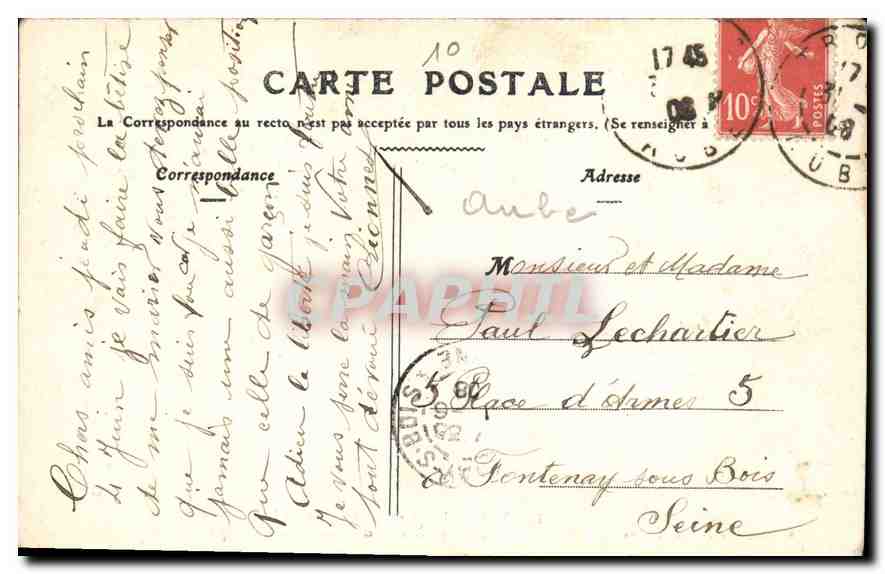 10
CARTE POSTALE
La Correspondance au recto n'est pas acceptée par tous les pays étrangers. (Se renseigner à
Correspondance
Adresse
17 45
08
10c
POSTES
Aube
Monsieur et Madame
Paul Lechartier
5 Place d'Armes 5
Fontenay sous Bois
Seine
Chers amis jeudi prochain
4 Juin je vais faire la bêtise
de me marier vous pensez
que je suis fou car je n'aurai
jamais une aussi belle position
que celle de garçon
Adieu la liberté je suis
Je vous serre la main Votre ami
tout dévoué
CPAPHIL